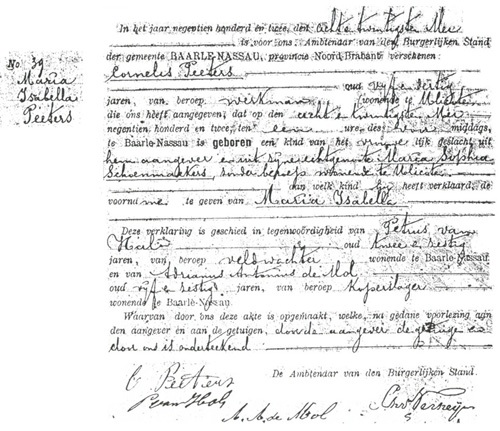 In het jaar negentien honderd en twee, den acht en twintigsten Mei
is voor ons, Ambtenaar van den Burgerlijken Stand
der gemeente BAARLE-NASSAU, provincie Noord-Brabant verschenen:
No. 39
Maria
Isabella
Peeters
Cornelis Peeters
oud vijf en dertig
jaren, van beroep werkman wonende te Ulicoten
die ons heeft aangegeven, dat op den acht en twintigsten Mei
negentien honderd en twee, ten een ure, des voor middags,
te Baarle-Nassau is geboren een kind van het vrouwelijk geslacht uit
hem aangever en uit zijne echtgenoote Maria Sophia
Schoenmakkers zonder beroep wonende te Ulicoten
aan welk kind hij heeft verklaard, de
voornamen te geven van Maria Isabella
Deze verklaring is geschied in tegenwoordigheid van Petrus van
Hal oud twee en zestig
jaren, van beroep veldwachter wonende te Baarle-Nassau
en van Adrianus Antonius de Mol
oud vijf en zestig jaren, van beroep koperslager
wonende te Baarle-Nassau.
Waarvan door ons deze akte is opgemaakt, welke, na gedane voorlezing aan
den aangever en aan de getuigen, door de aangever de getuigen en
door ons is onderteekend
De Ambtenaar van den Burgerlijken Stand.
C Peeters
P van Hal
A. A. de Mol